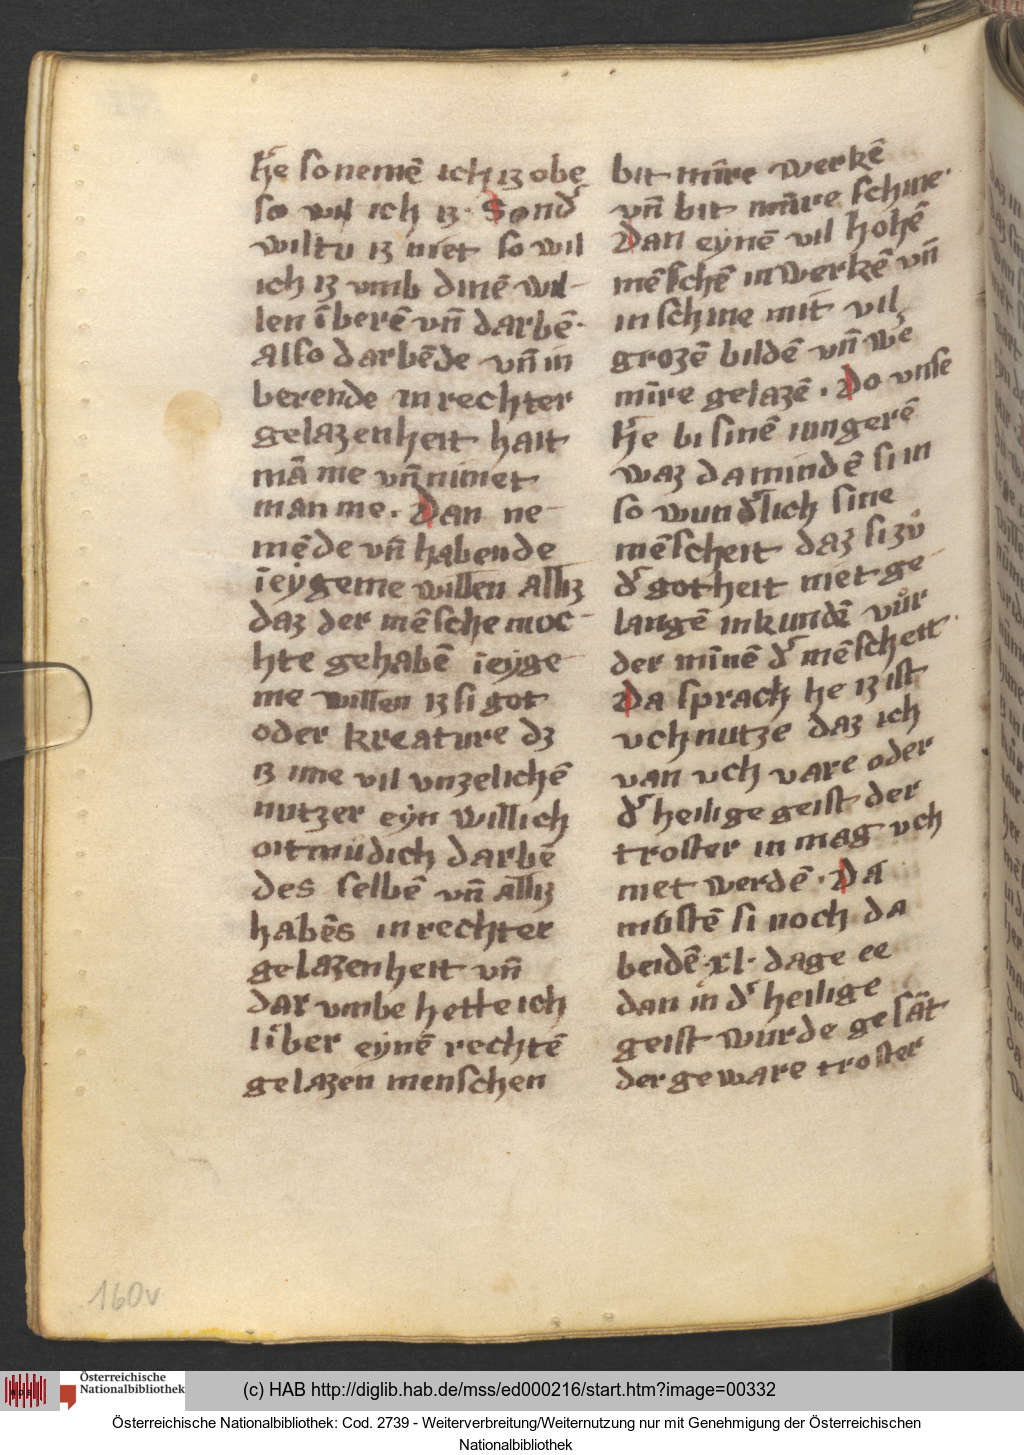 h̾e so nemē ich iz obe
so wil ich iz. Sond̾
wiltu iz niet so wil
ich iz vmb dinē wil-
len ī berē vn̄ darbē.
Also darbēde vn̄ in
berende in rechter
gelazenheit hait
mā me vn̄ nimet
man me. Dan ne-
mēde vn̄ habende
ieygeme willen alliz
daz der mēsche moc-
hte gehabē ieyge-
me willen iz si got
oder kreature dz
iz ime vil vnzelichē
nutzer eyn willich
oitmudich darbē
des selbē vn̄ alliz
habēs in rechter
gelazenheit vn̄
dar vmbe hette ich
lib̾er eynē rechtē
gelazen menschen
bit mīre werkē
vn̄ bit mīnre schine.
Dan eynē vil hohē
mēschē in werkē vn̄
in schine mit vil
grozē bildē vn̄ wē
mīre gelazē. Do vnse
h̾e bi sinē iungerē
waz da mindē si in
so wund̾lich sine
mēscheit daz si zů
d̾ gotheit niet ge
langē in kundē vůr
der mīnē d̾ mēscheit.
Da sprach he iz ist
vch nutze daz ich
van vch vare oder
d̾ heilige geist der
troster in mag vch
niet werdē. Da
mūstē si noch da
beidē .xl. dage ee
dan in d̾ heilige
geist wurde gesāt
der geware troster
160v
Österreichische
Nationalbibliothek
(c) HAB http://diglib.hab.de/mss/ed000216/start.htm?image=00332
Österreichische Nationalbibliothek: Cod. 2739 - Weiterverbreitung/Weiternutzung nur mit Genehmigung der Österreichischen
Nationalbibliothek